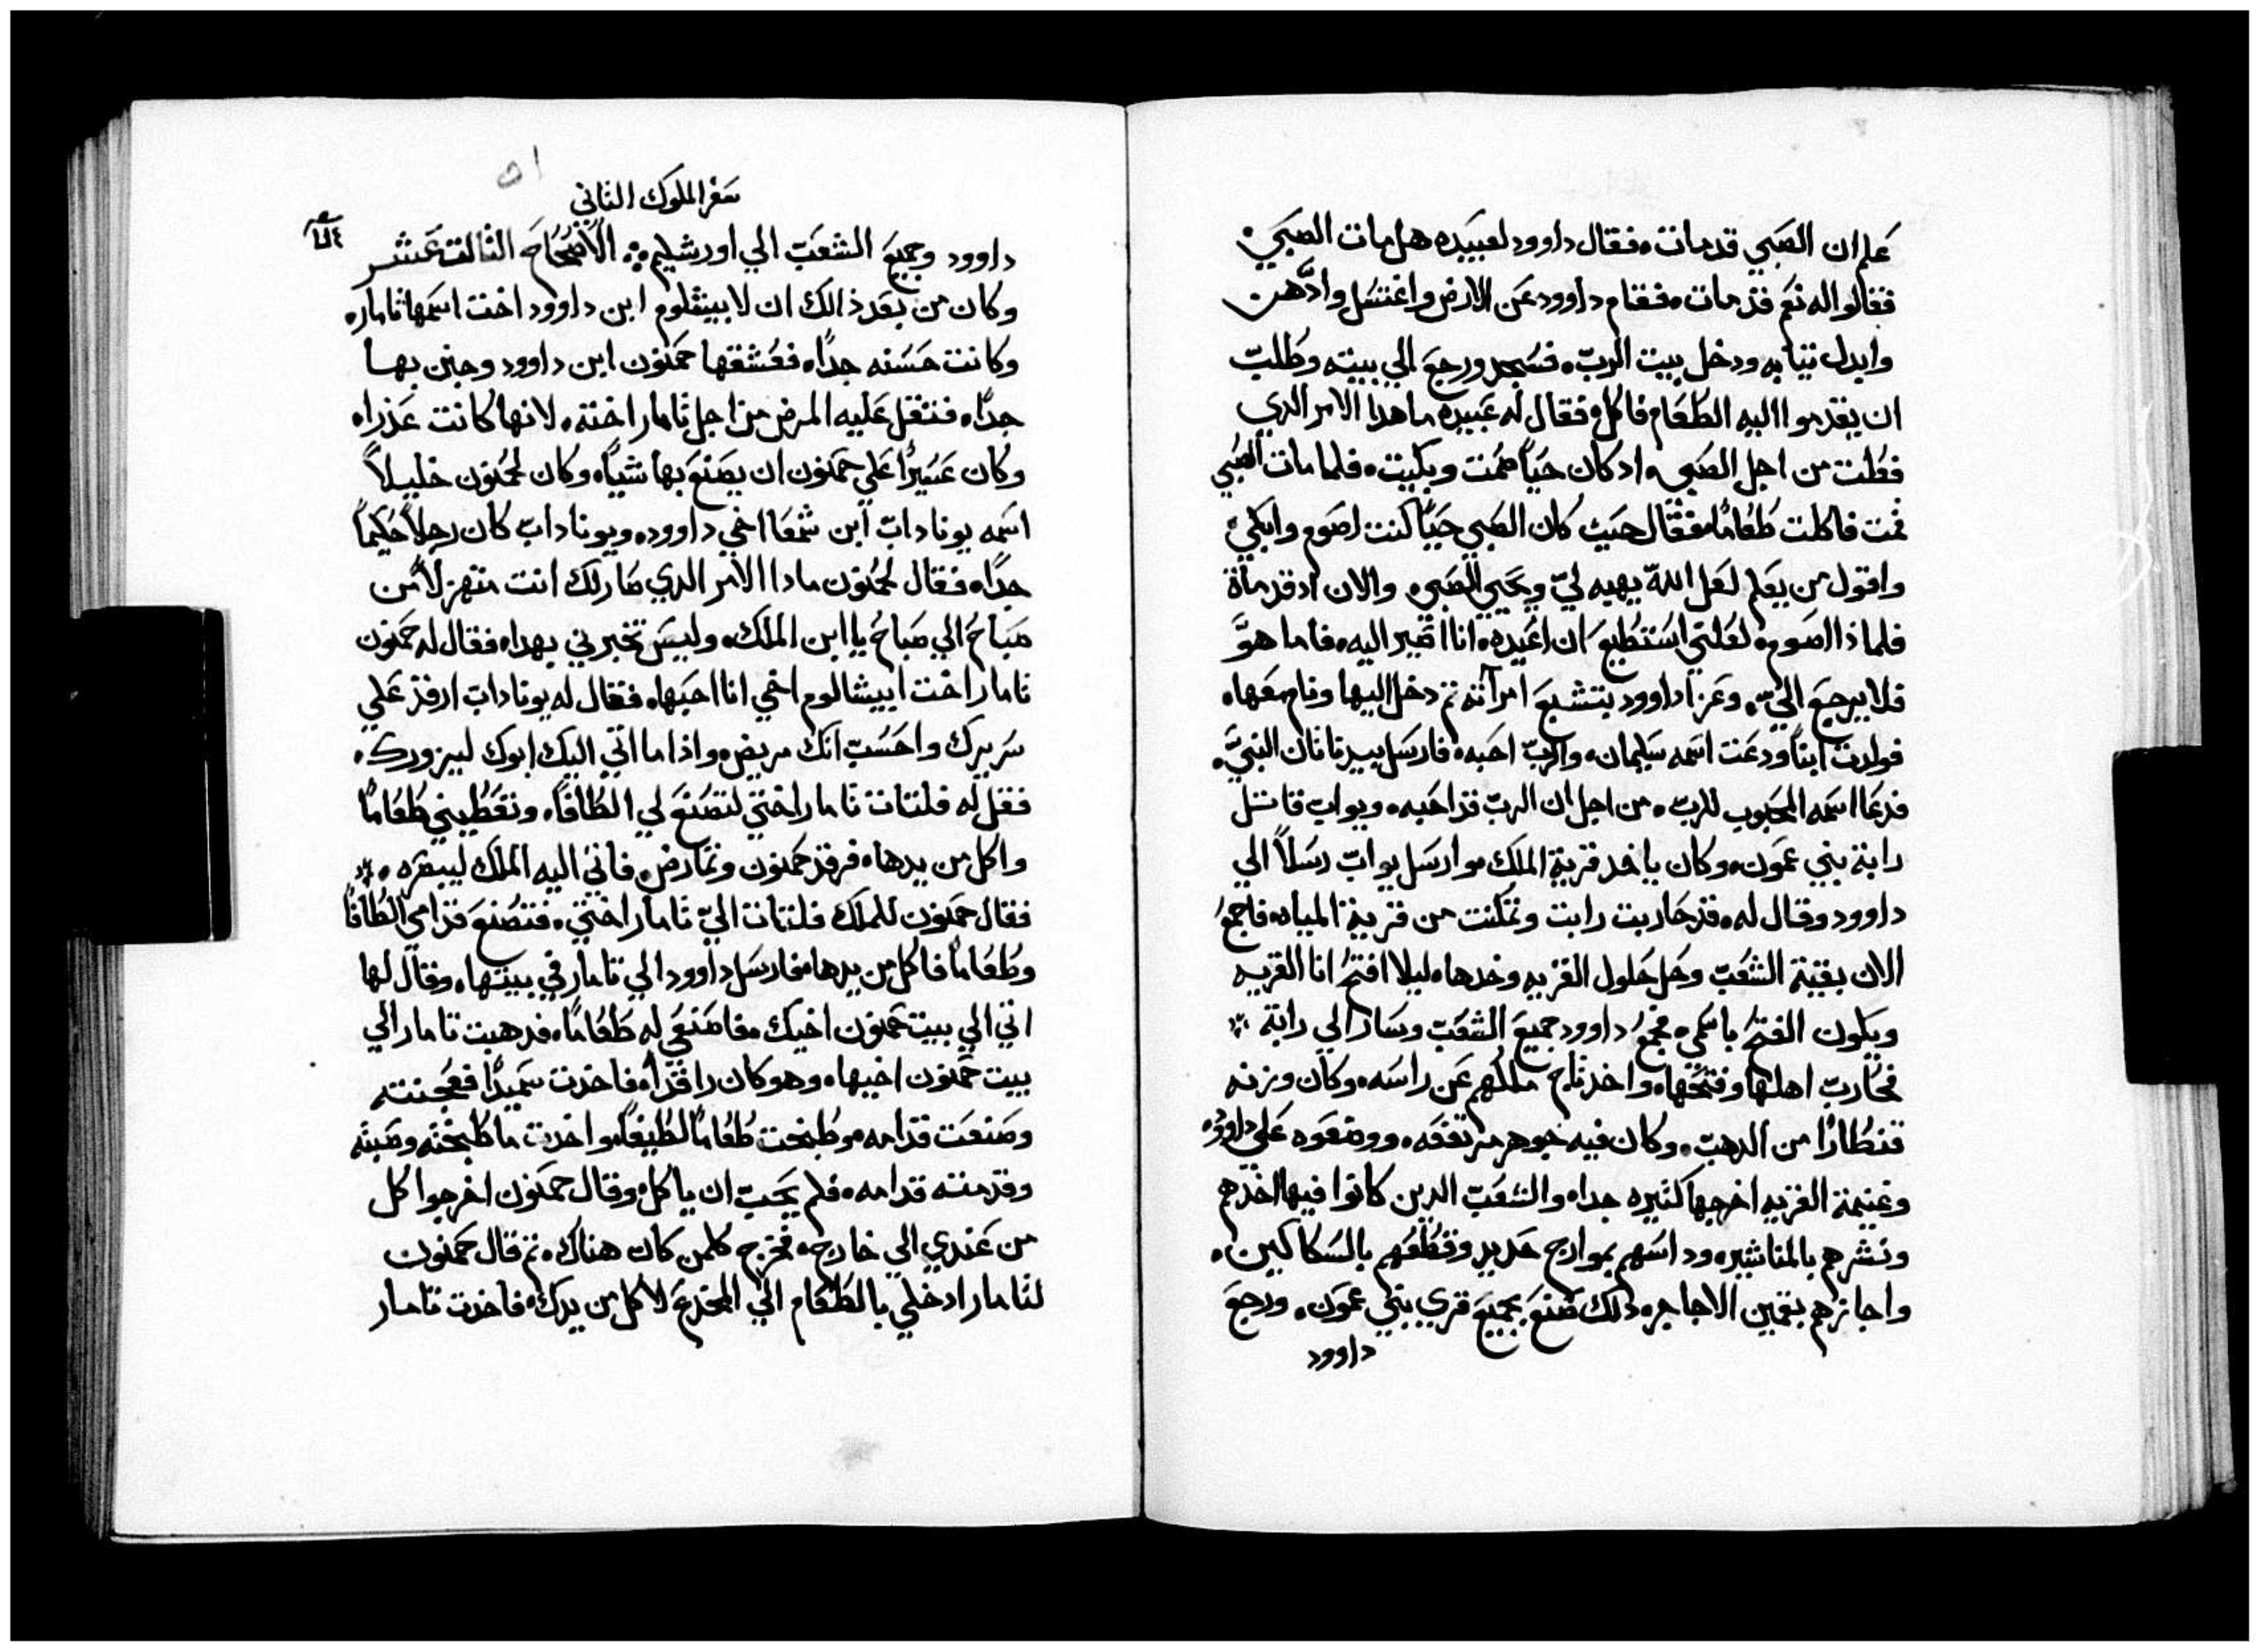 علم ان الصبي قد مات، فقال داوود لعبيده هل مات الصبي،
فقالوا له نعم قد مات، فقام داوود عن الارض واغتسل وادهن
وابدل ثيابه ودخل بيت الرب، فسجد ورجع الي بيته وطلب
ان يقدموا اليه الطعام فاكل، فقال له عبيده ما هدا الامر الدي
فعلت من اجل الصبي، اد كان حيًا صمت وبكيت، فلما مات الصبي
قمت فاكلت طعامًا، فقال حيث كان الصبي حيًا كنت اصوم وابكي،
واقول من يعلم لعل الله يهبه لي ويحيي الصبي، والان اد قد مات
فلماذا اصوم، لعلني استطيع ان اعيده، انا اصير اليه، فاما هو
فلا يرجع الي، وعزا داوود بتشبع امرآته ثم دخل اليها ونام معها،
فولدت ابنًا ودعت اسمه سليمان، والرب احبه، فارسل بيد ناتان النبي،
فدعا اسمه المحبوب للرب، من اجل ان الرب قد احبه، ويواب قاتل
رابة بني عمون، وكان ياخد قرية الملك، وارسل يواب رسلاً الي
داوود وقال له، قد حاربت رابت وتمكنت من قرية المياه، فاجمع
الان بقية الشعب وحل حلول القريه وخدها، ليلا افتح انا القريه
ويكون الفتح باسمي، فجمع داوود جميع الشعب وسار الي رابة،
فحارب اهلها وفتحها، واخد تاج ملكهم عن راسه، وكان وزنه
قنطارًا من الدهب، وكان فيه جوهر مرتفعه، ووضعوه علي داوود،
وغنيمة القريه اخرجها كثيره جدا، والشعب الدين كانوا فيها اخدهم
ونشرهم بالمناشير، وداسهم بموارج حديد وقطعهم بالسكاكين،
واجازهم بقمين الاجاجر، دلك صنع بجميع قري بني عمون، ورجع
داوود
٥١
سفر الملوك الثاني
داوود وجميع الشعب الي اورشليم، الاصحاح الثالث عشر
وكان من بعد ذالك ان لابيشلوم ابن داوود اخت اسمها تامار،
وكانت حسنه جدًا، فعشقها حمنون ابن داوود وحزن بها
جدًا، فتثقل عليه المرض من اجل تامار اخته، لانها كانت عذراء
وكان عسيرًا علي حمنون ان يصنع بها شيًا، وكان لحمنون خليلاً
اسمه يوناداب ابن شمعا اخي داوود، ويوناداب كان رجلاً حكيمًا
جدًا، فقال لحمنون مادا الامر الدي صار لك انت منهزلاً من
صباح الي صباح يا ابن الملك، وليس تخبرني بهدا، فقال له حمنون
تامار اخت ابيشالوم اخي انا احبها، فقال له يوناداب ارقد علي
سريرك واحسب انك مريض، واذا ما اتي اليك ابوك ليزورك،
فقل له فلتات تامار اختي لتصنع لي الطافًا، وتعطيني طعامًا
واكل من يدها، فرقد حمنون وتمارض، فاتي اليه الملك ليبصره،
فقال حمنون للملك فلتات الي تامار اختي، فتصنع قدامي الطافًا
وطعامًا فاكل من يدها، فارسل داوود الي تامار في بيتها، وقال لها
اتي الي بيت حمنون اخيك، فاصنعي له طعامًا، فدهبت تامار الي
بيت حمنون اخيها، وهو كان راقدًا، فاخدت سميدًا فعجنته
وصنعت قدامه، وطبخت طعامًا لطيفًا، واخدت ما طبخته وصبته
وقدمته قدامه، فلم يحب ان ياكل، وقال حمنون اخرجوا كل
من عندي الي خارج، فخرج كلمن كان هناك، ثم قال حمنون
لتامار ادخلي بالطعام الي المخدع لاكل من يدك، فاخدت تامار